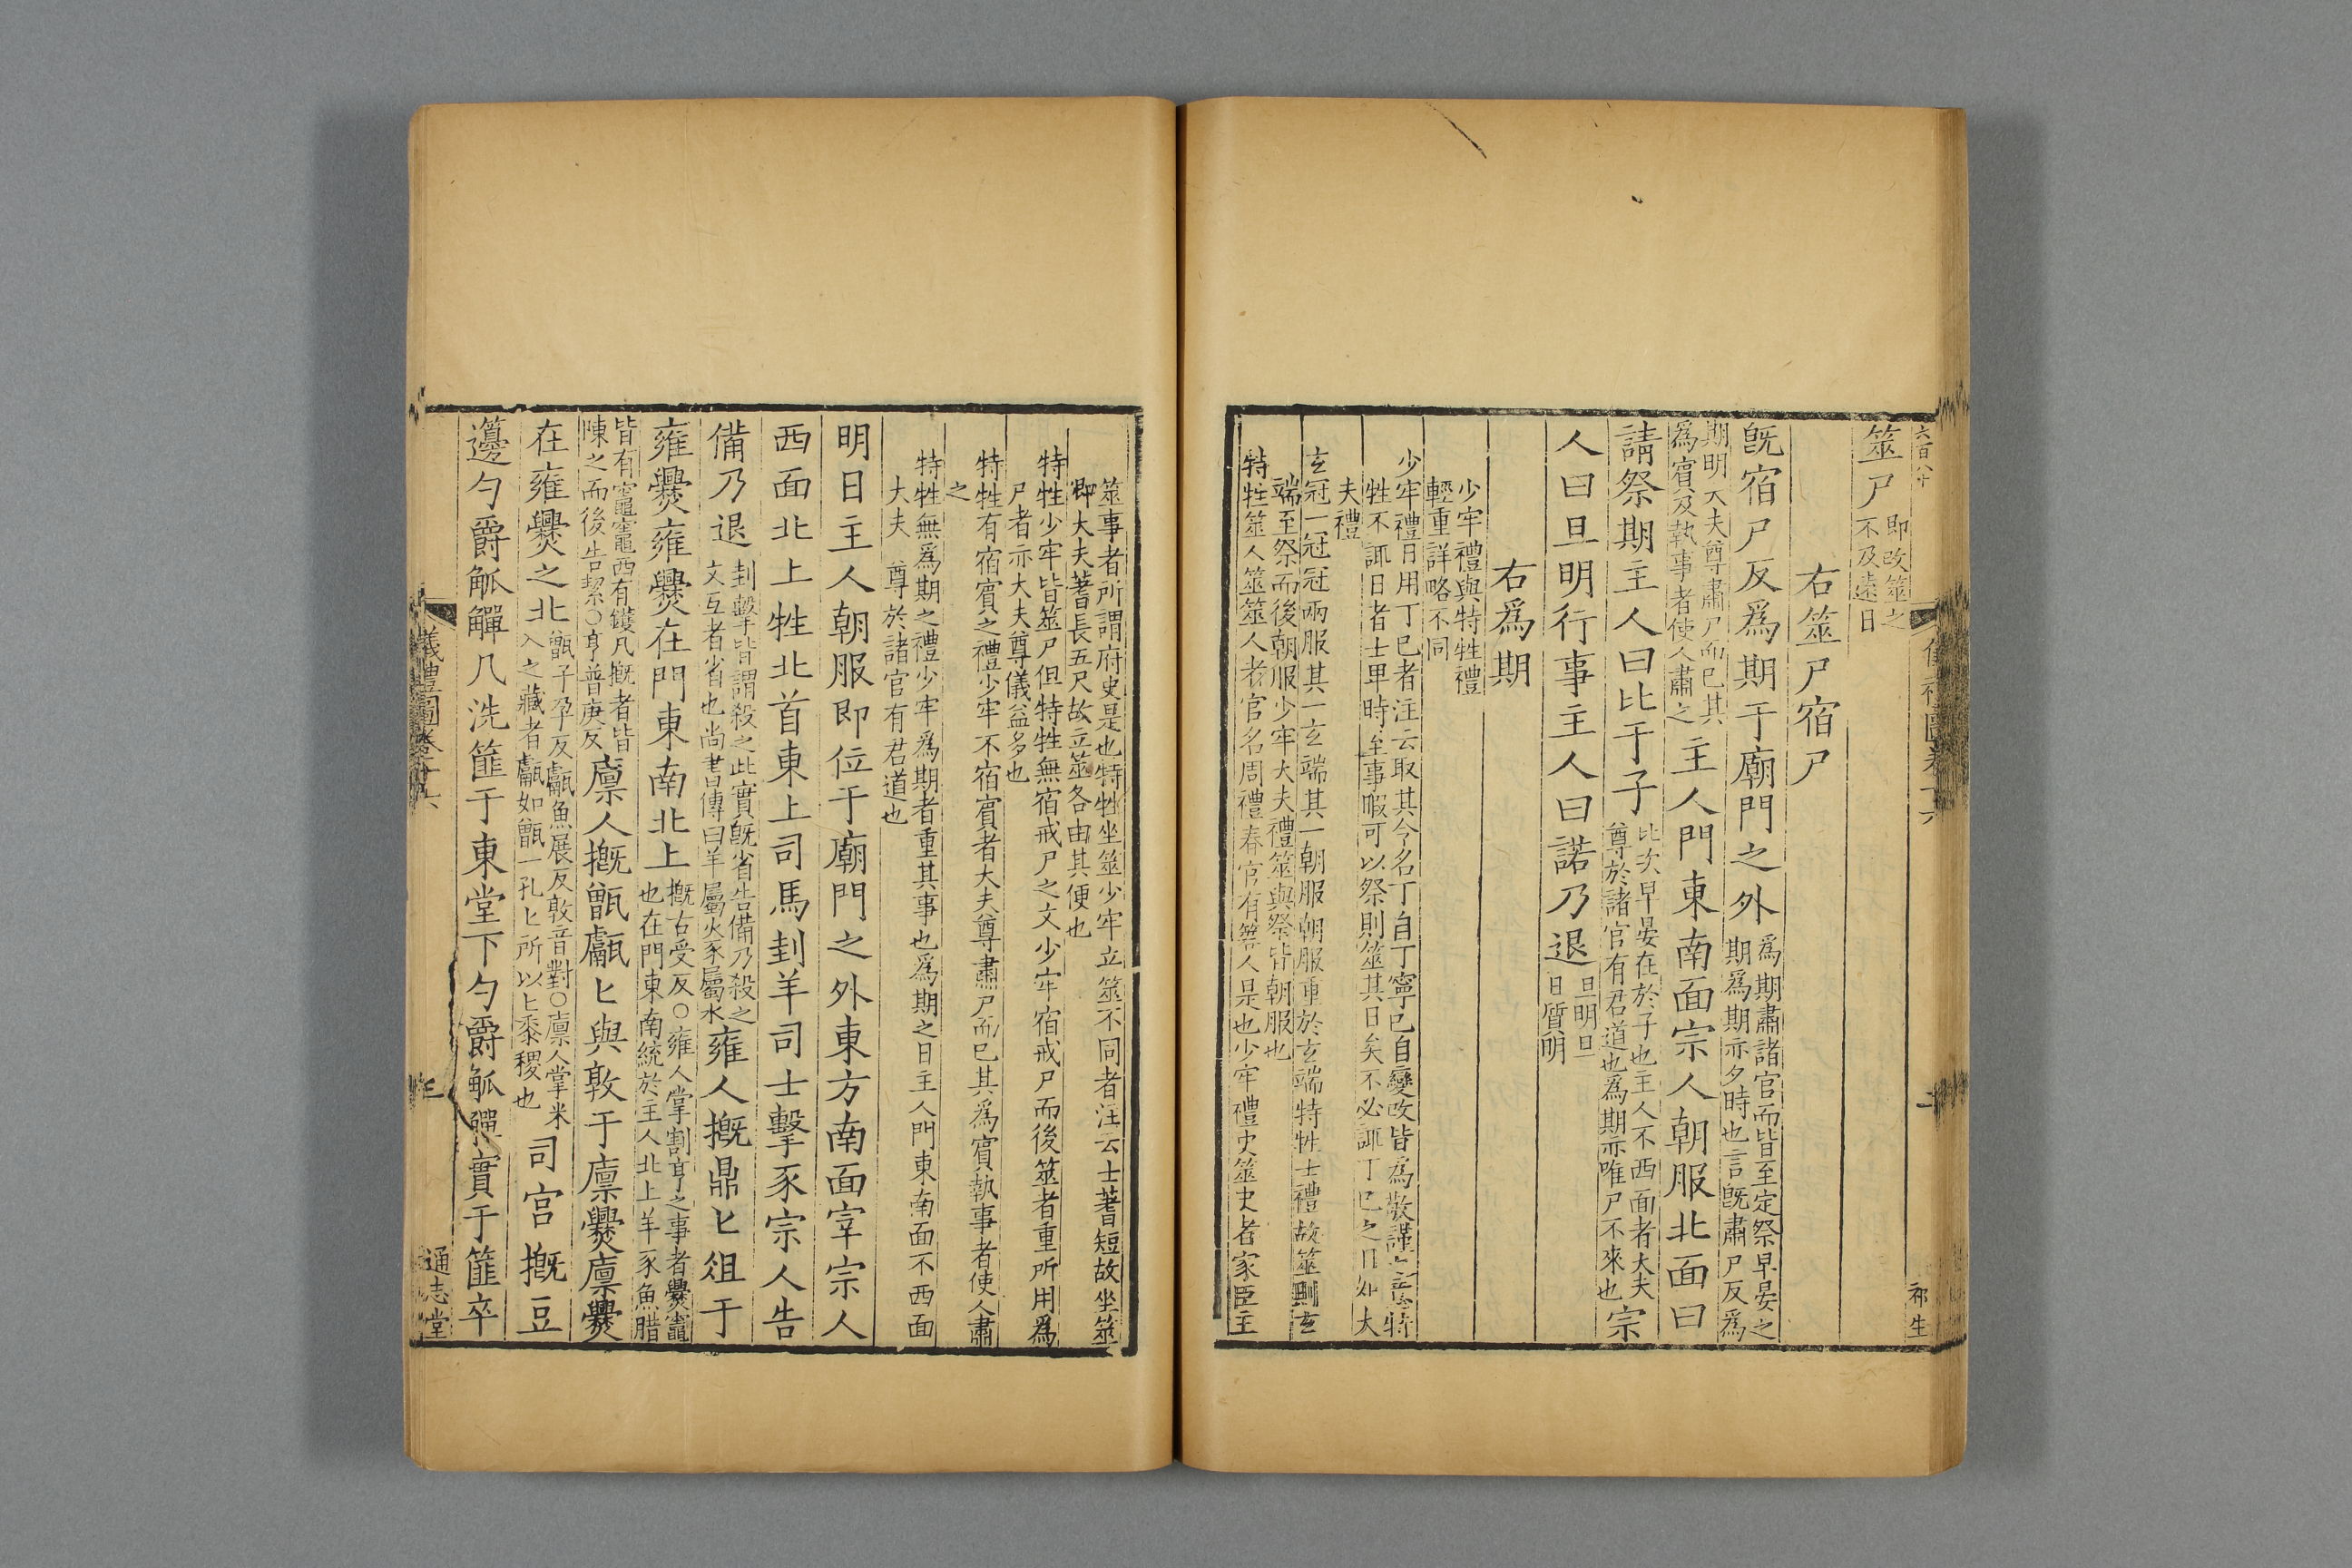 六百八十
儀禮圖卷十六
祁生
筮尸即改筮之
不及遠日
右筮尸宿尸
旣宿尸反爲期于廟門之外爲期肅諸官而皆至定祭早晏之
期爲期亦夕時也言旣肅尸反爲
期明大夫尊肅尸而已其
爲賓及執事者使人肅之主人門東南面宗人朝服北面曰
請祭期主人曰比于子比次早晏在於子也主人不西面者大夫
尊於諸官有君道也爲期亦唯尸不來也宗
人曰旦明行事主人曰諾乃退旦明旦
日質明
右爲期
少牢禮與特牲禮
輕重詳略不同
少牢禮日用丁巳者注云取其令名丁自丁寧巳自變改皆爲敬謹
特
牲不諏日者士卑時至事暇可以祭則筮其日矣不必諏丁巳之日如大
夫禮
玄冠一冠冠兩服其一玄端其一朝服朝服重於玄端特牲士禮故筮則玄
端至祭而後朝服少牢大夫禮筮與祭皆朝服也
特牲筮人筮筮人者官名周禮春官有簭人是也少牢禮史筮史者家臣主
筮事者所謂府史是也特牲坐筮少牢立筮不同者注云士蓍短故坐筮
卽大夫蓍長五尺故立筮各由其便也
特牲少牢皆筮尸但特牲無宿戒尸之文少牢宿戒尸而後筮者重所用爲
尸者亦大夫尊儀益多也
特牲有宿賓之禮少牢不宿賓者大夫尊肅尸而已其爲賓執事者使人肅
之
特牲無爲期之禮少牢爲期者重其事也爲期之日主人門東南面不西面
大夫尊於諸官有君道也
明日主人朝服即位于廟門之外東方南面宰宗人
西面北上牲北首東上司馬刲羊司士擊豕宗人告
備乃退刲擊皆謂殺之此實旣省告備乃殺之
文互者省也尚書傳曰羊屬火豕屬水雍人摡鼎匕俎于
雍爨雍爨在門東南北上摡古受反○雍人掌割亨之事者爨竈
也在門東南統於主人北上羊豕魚腊
皆有竈竈西有鑊凡摡者皆
陳之而後告絜○亨普庚反廩人摡甑甗匕與敦于廩爨廩爨
在雍爨之北甑子孕反甗魚展反敦音對○廩人掌米
入之藏者甗如甑一孔匕所以匕黍稷也司宮摡豆
籩勺爵觚觶几洗篚于東堂下勺爵觚觶實于篚卒
儀禮圖卷十六
通志堂